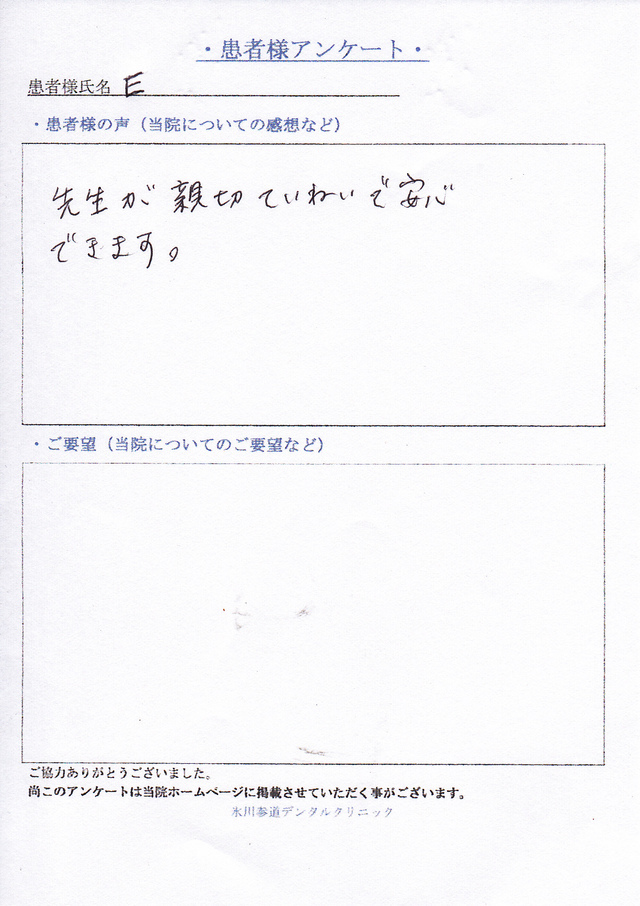 ・患者様アンケート・
患者様氏名 E
・患者様の声（当院についての感想など）
先生が親切ていねいで安心
できます。
・ご要望（当院についてのご要望など）
ご協力ありがとうございました。
尚このアンケートは当院ホームページに掲載させていただく事がございます。
氷川参道デンタルクリニック